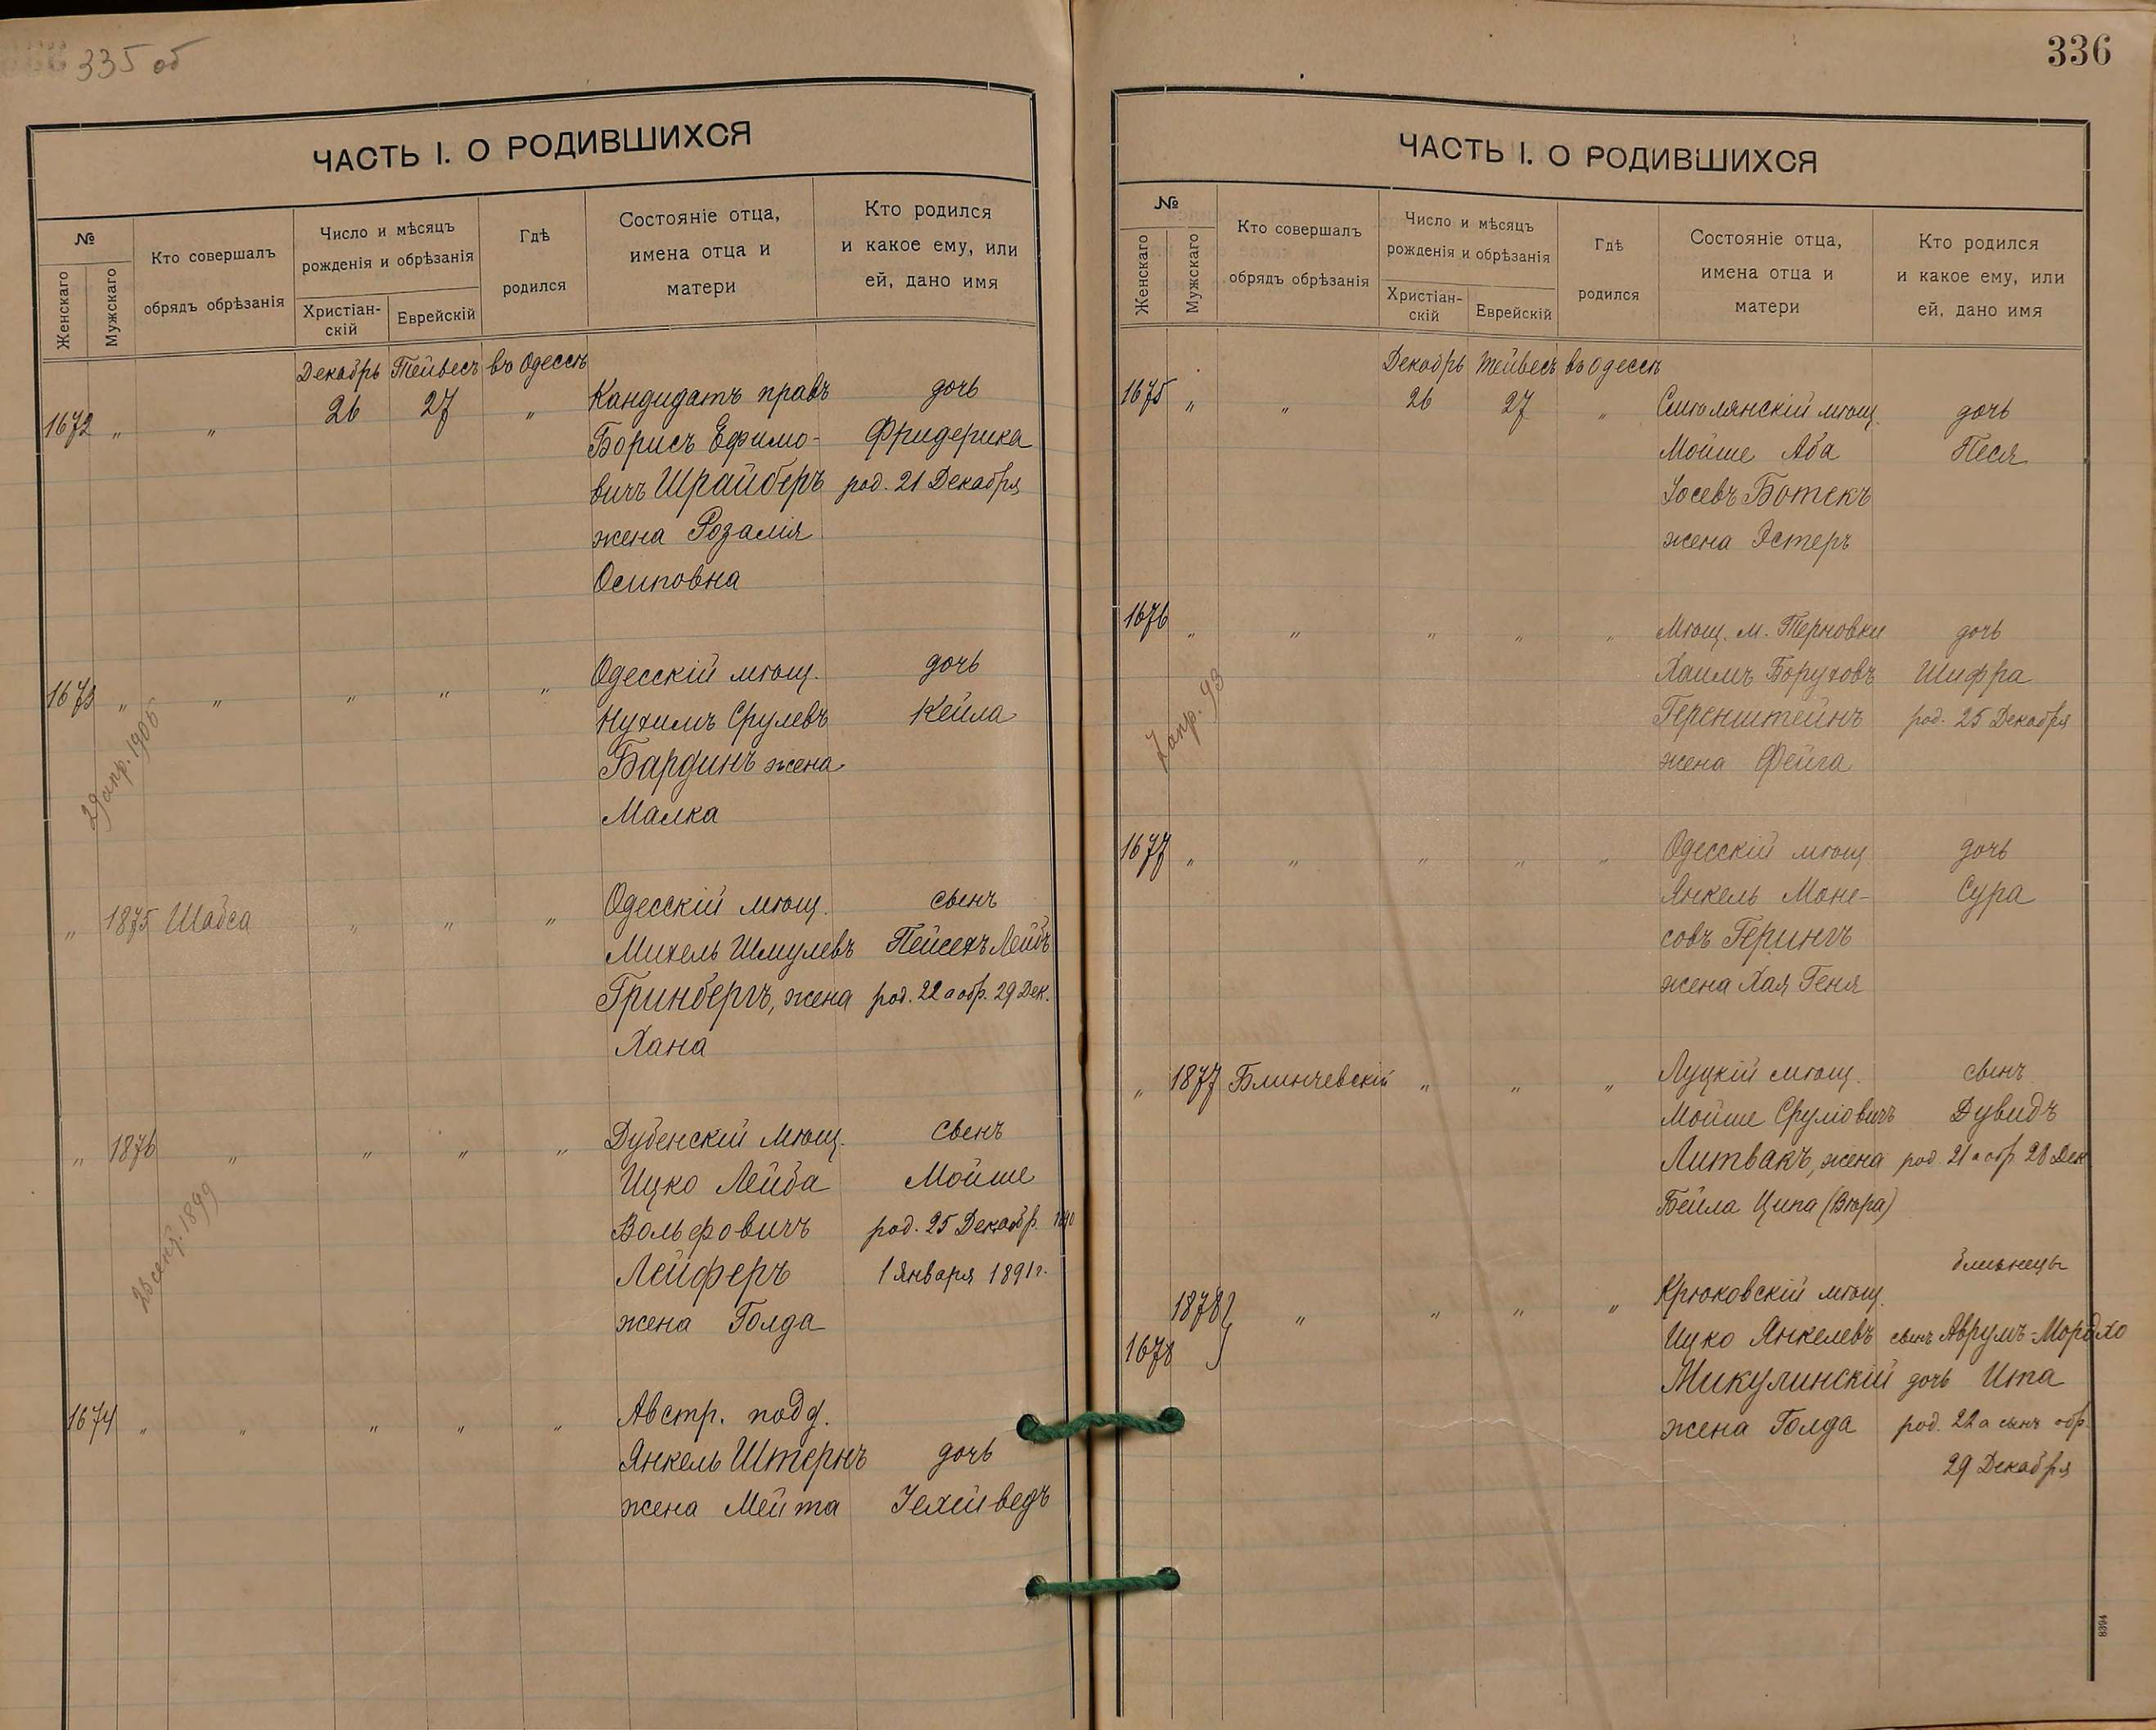 335 об
ЧАСТЬ I. О РОДИВШИХСЯ
№
Женскаго
Мужскаго
Кто совершалъ
обрядъ обрѣзанія
Число и мѣсяцъ
рожденія и обрѣзанія
Христіан-
скій
Еврейскій
Гдѣ
родился
Состояніе отца,
имена отца и
матери
Кто родился
и какое ему, или
ей, дано имя
Декабрь Тейвесъ въ Одессѣ
1672 „ „ 26 27 „ Кандидатъ правъ дочь
Борисъ Ефимо- Фридерика
вичъ Шрайберъ род. 21 Декабря
жена Розалія
Осиповна
1673 „ „ „ „ „ Одесскій мѣщ. дочь
Нухимъ Срулевъ Кейла
Бардинъ жена
Малка
29 апр. 1905
„ 1875 Шабса „ „ „ Одесскій мѣщ. сынъ
Михель Шмулевъ Пейсехъ Лейбъ
Гринбергъ, жена род. 22 а обр. 29 Дек.
Хана
„ 1876 „ „ „ „ Дубенскій мѣщ. сынъ
Ицко Лейба Мойше
Вольфовичъ род. 25 Декабр.
Лейферъ 1 Января 1891 г.
жена Голда
28 сент. 1899
1674 „ „ „ „ „ Австр. подд.
Янкель Штернъ дочь
жена Мейта Іехейведъ
336
ЧАСТЬ I. О РОДИВШИХСЯ
№
Женскаго
Мужскаго
Кто совершалъ
обрядъ обрѣзанія
Число и мѣсяцъ
рожденія и обрѣзанія
Христіан-
скій
Еврейскій
Гдѣ
родился
Состояніе отца,
имена отца и
матери
Кто родился
и какое ему, или
ей, дано имя
Декабрь Тейвесъ въ Одессѣ
1675 „ „ 26 27 „ Смолянскій мѣщ. дочь
Мойше Аба Песя
Іосевъ Ботекъ
жена Эстеръ
1676 „ „ „ „ „ Мѣщ. м. Терновки дочь
Хаимъ Боруховъ Шифра
Геренштейнъ род. 25 Декабря
жена Фейга
7 апр. 93
1677 „ „ „ „ „ Одесскій мѣщ дочь
Янкель Моне- Сура
совъ Герингъ
жена Хая Геня
„ 1877 Блинчевскій „ „ „ Луцкій мѣщ. сынъ
Мойше Сруловичъ Дувидъ
Литвакъ, жена род. 21 а обр 28 Дек
Бейла Ципа (Вѣра)
близнецы
1878 „ „ „ „ Крюковскій мѣщ.
1678 Ицко Янкелевъ сынъ Аврумъ-Мордко
Микулинскій дочь Ита
жена Голда род. 22 а сынъ обр.
29 Декабря
8394